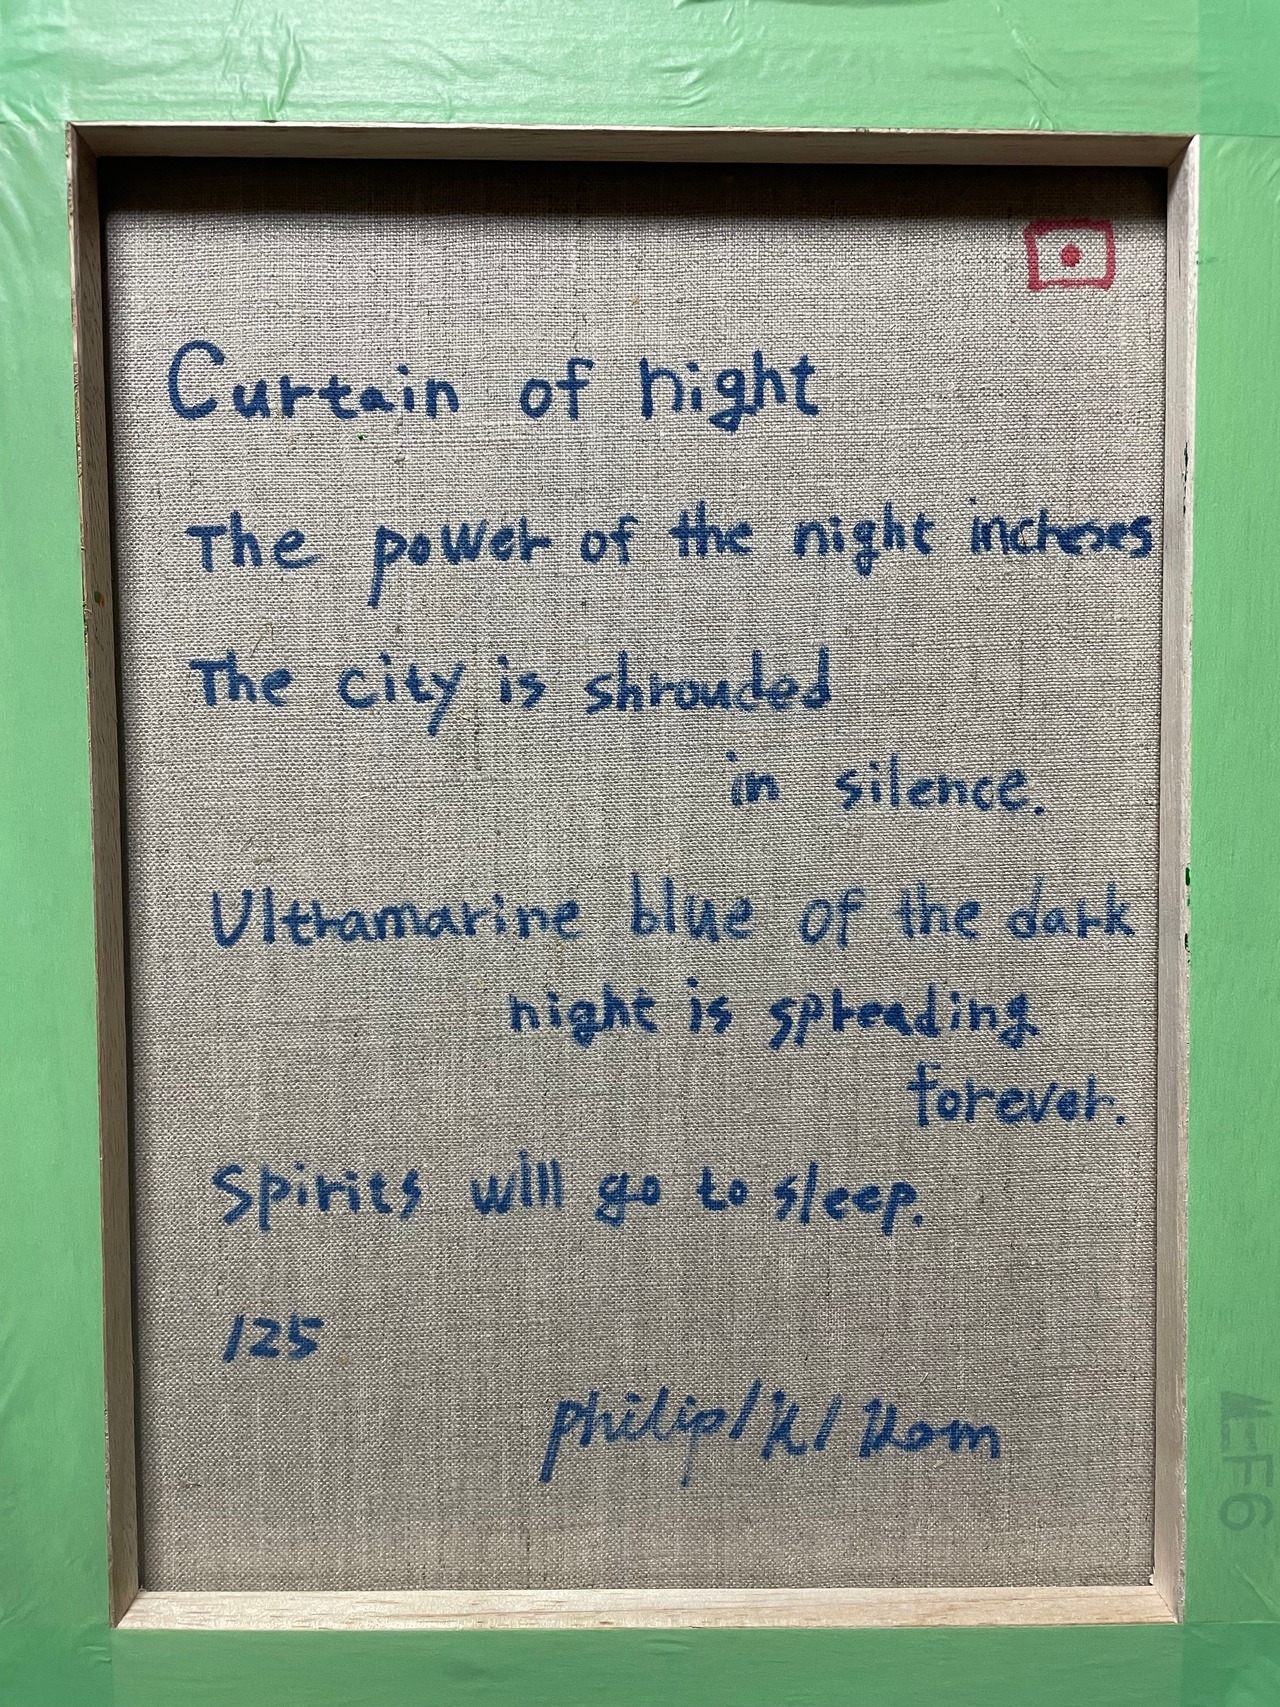 Curtain of night
The power of the night increses
The city is shrouded
in silence.
Ultramarine blue of the dark
night is spreading
forever.
Spirits will go to sleep.
125
philip/k/
F6